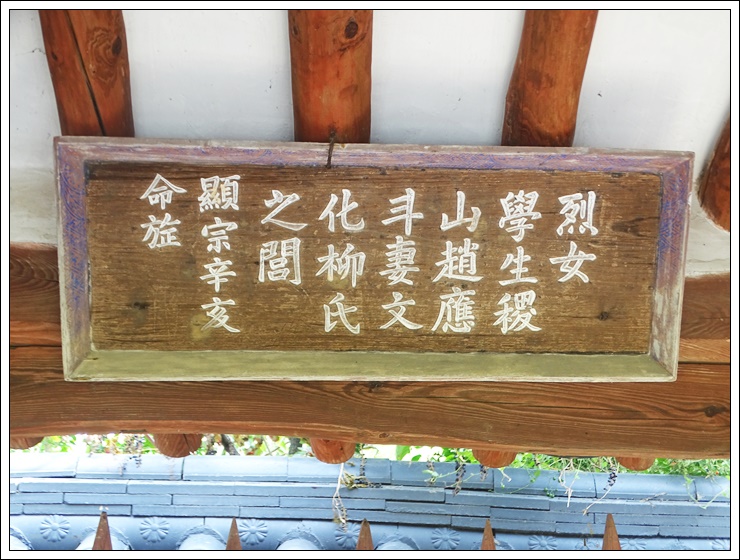 烈女
學生稷
山趙應
斗妻文
化柳氏
之閭
顯宗辛亥
命旌